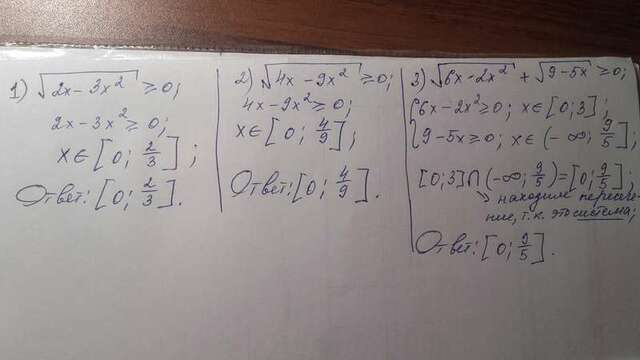 1) √(2x-3x²) ≥ 0;
2x-3x² ≥ 0;
x ∈ [0; 2/3];
Ответ: [0; 2/3].
2) √(4x-9x²) ≥ 0;
4x-9x² ≥ 0;
x ∈ [0; 4/9];
Ответ: [0; 4/9].
3) √(6x-2x²) + √(9-5x) ≥ 0;
{6x-2x² ≥ 0; x ∈ [0; 3];
{9-5x ≥ 0; x ∈ (-∞; 9/5];
[0; 3] ∩ (-∞; 9/5) = [0; 9/5];
находим пересече-
ние, т.к. это система;
Ответ: [0; 9/5].